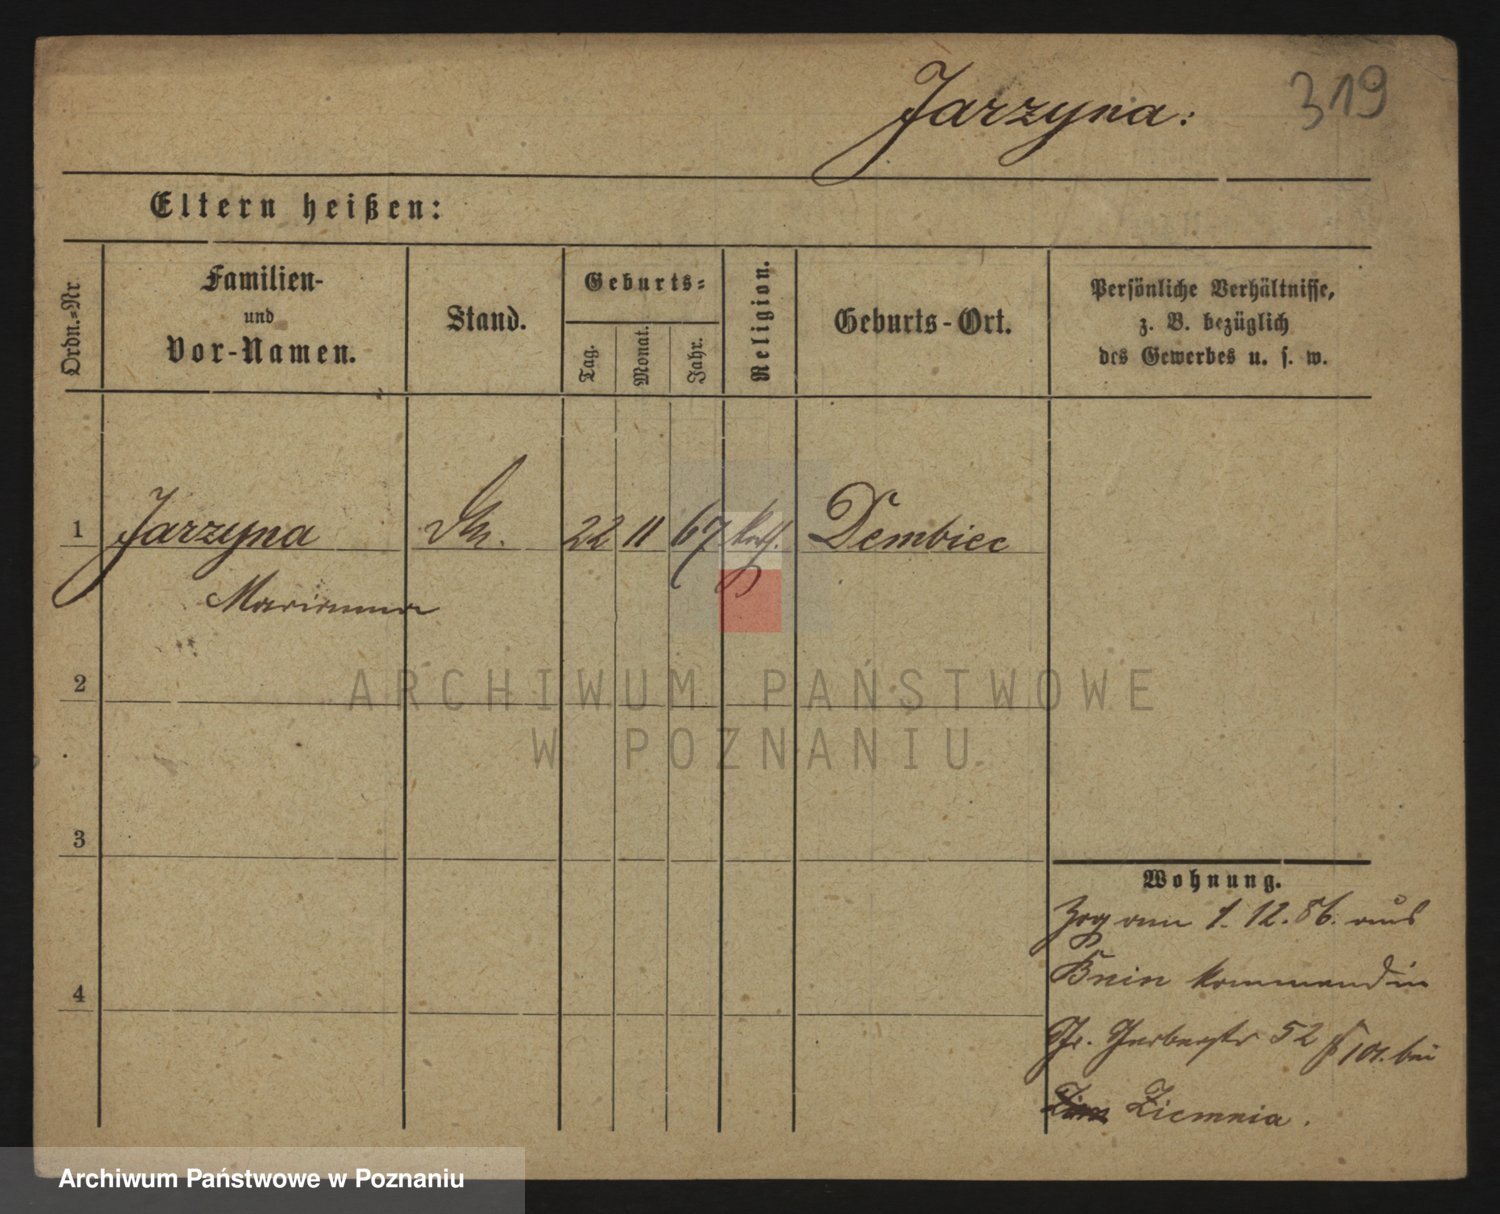 Jarzyna:
319
Eltern heißen:
Ordn.=Nr.
Familien-
und
Vor-Namen.
Stand.
Geburts=
Tag.
Monat.
Jahr.
Religion.
Geburts-Ort.
Persönliche Verhältnisse,
z. B. bezüglich
des Gewerbes u. s. w.
1 Jarzyna 22 11 67 kath. Dembiec
Marianna
2
3
4
Wohnung.
Zog am 1. 12. 86. aus
Bnin kommend in
Gr. Gerberstr 52 bei
Ziemnia.
ARCHIWUM PAŃSTWOWE
W POZNANIU
Archiwum Państwowe w Poznaniu